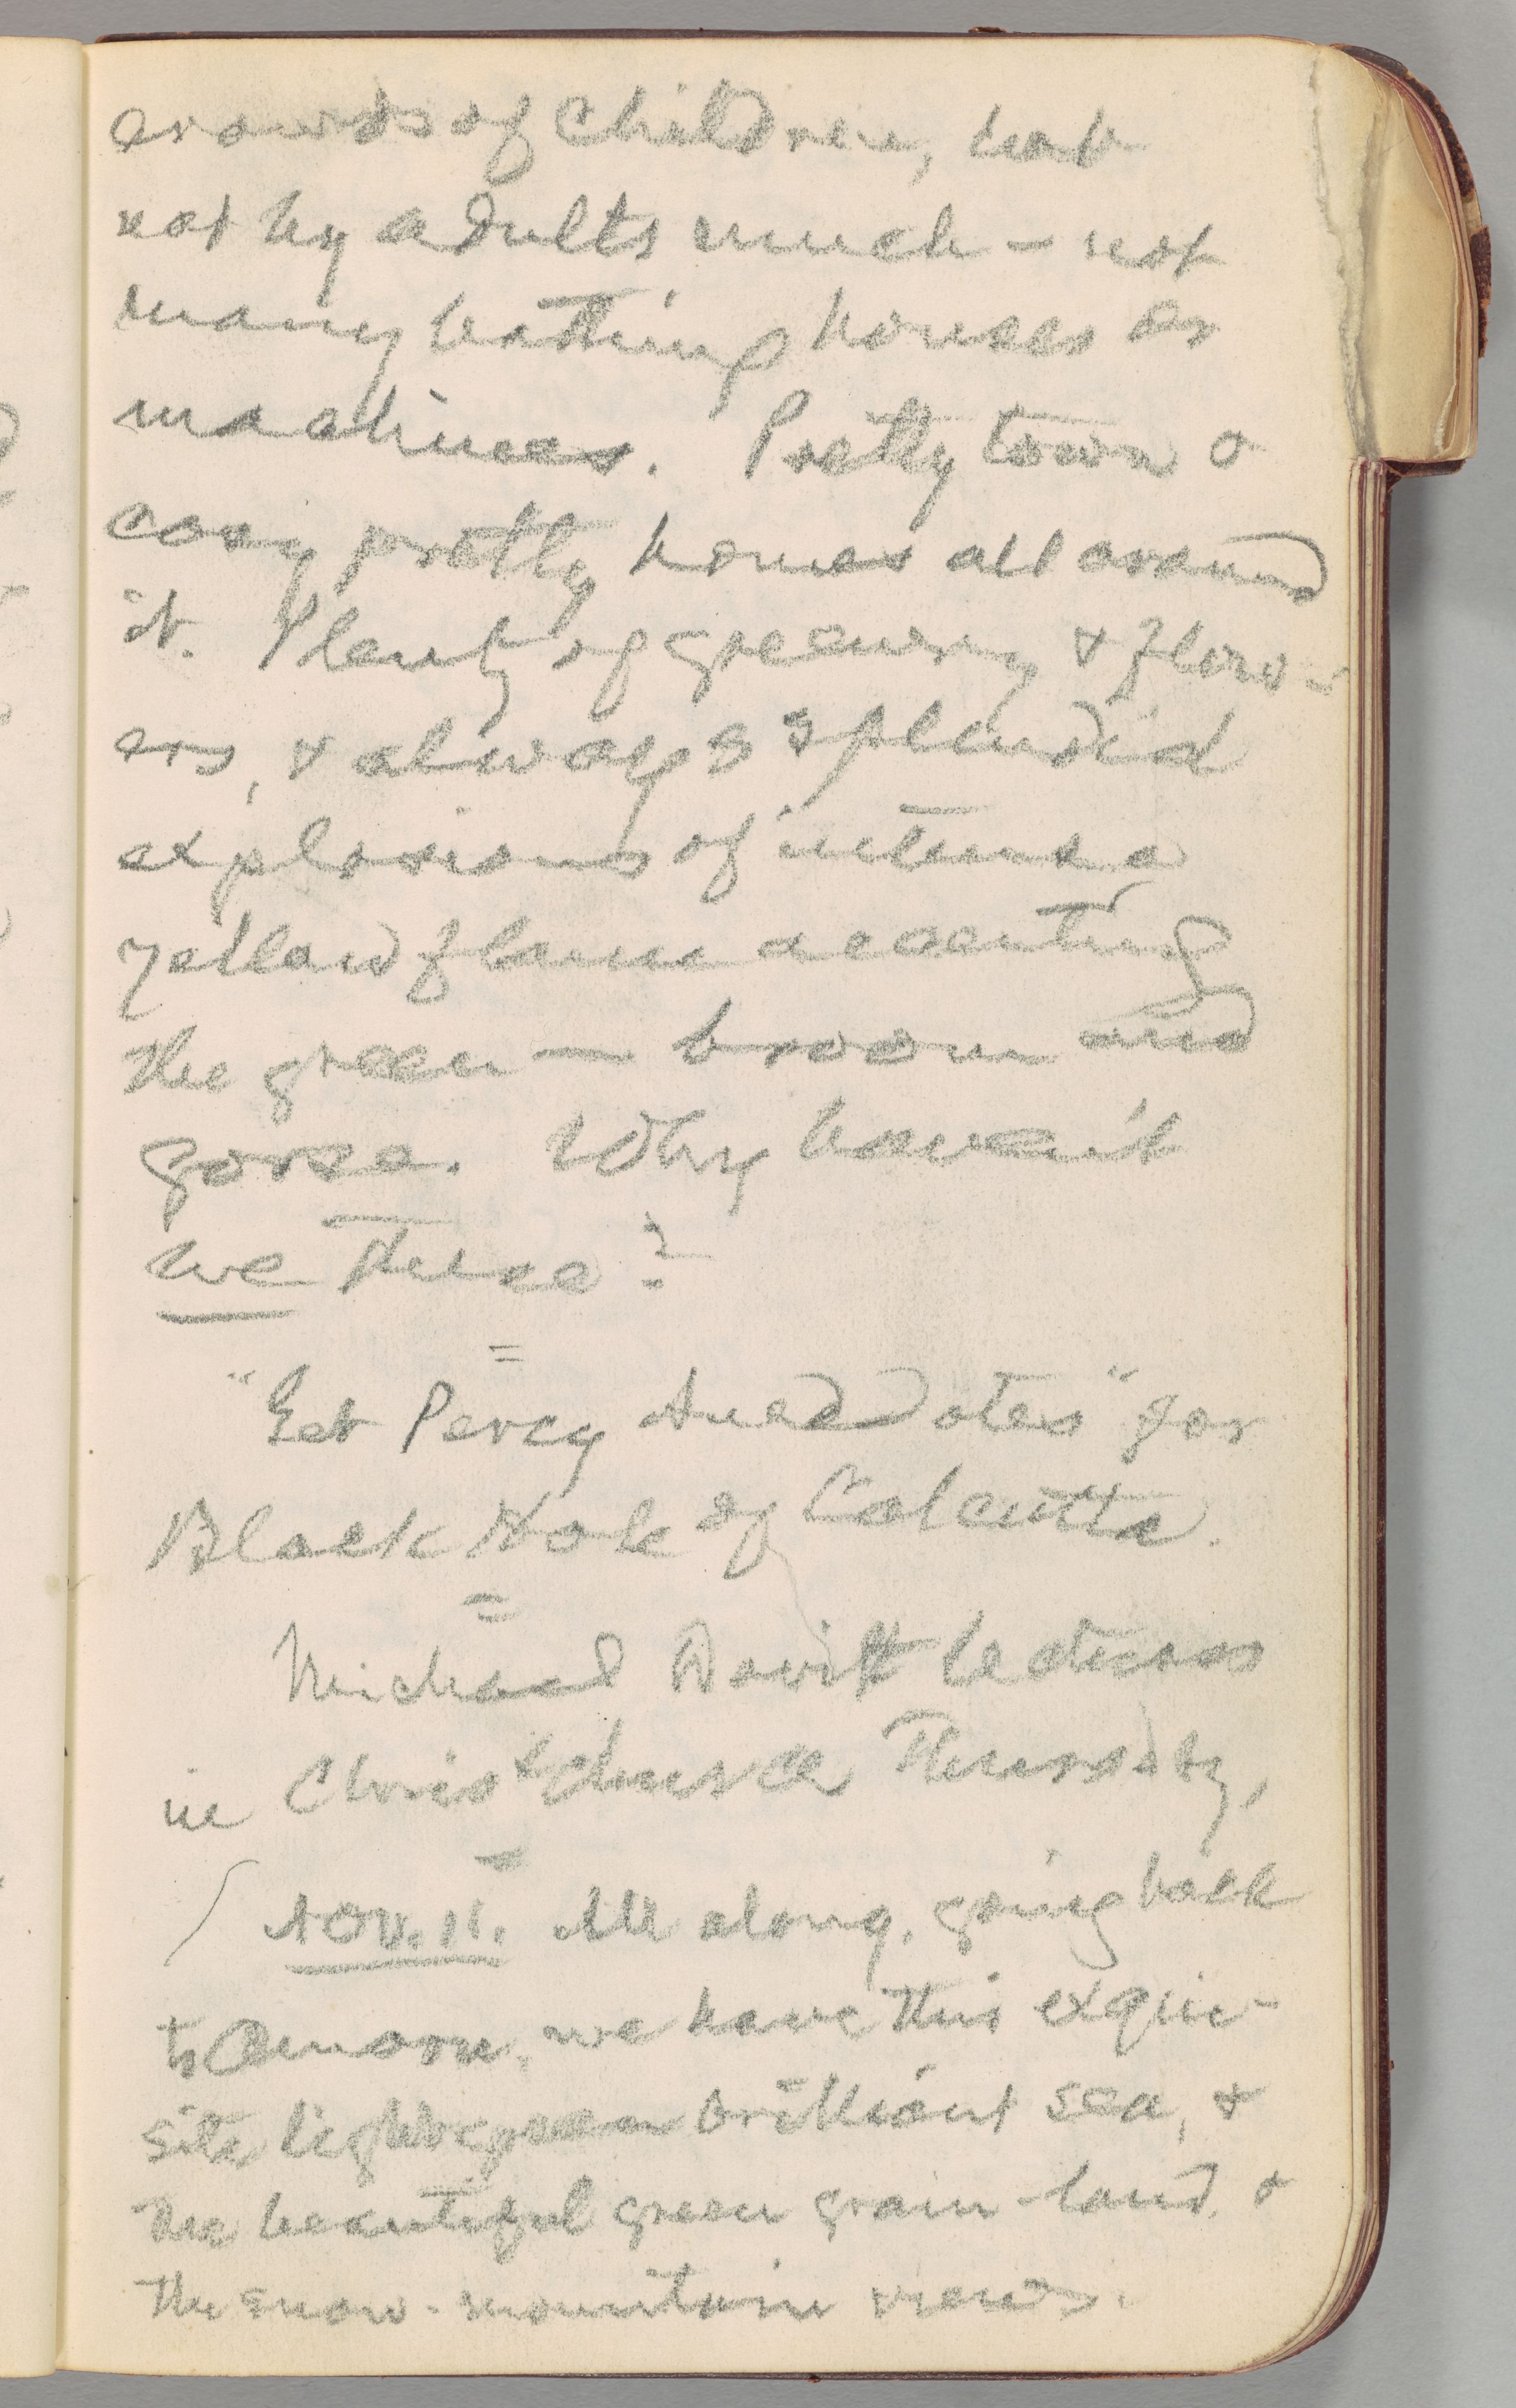 crowds of children, but
not by adults much — not
many bathing houses or
machines. Pretty town &
cosy pretty homes all around
it. Plenty of greenery & flow-
ers, & always splendid
explosions of intense
yellow flame accenting
the green — broom and
gorse. Why haven't
we these?
=
"Get Percy Anecdotes" for
Black Hole of Calcutta.
=
Michael Davitt lectures
in Christchurch Thursday,
=
Nov. 11. All along, going back
to Omaru, we have this exqui-
site light-green brilliant sea, &
the beautiful green grain-land, &
the snow-mountain views.